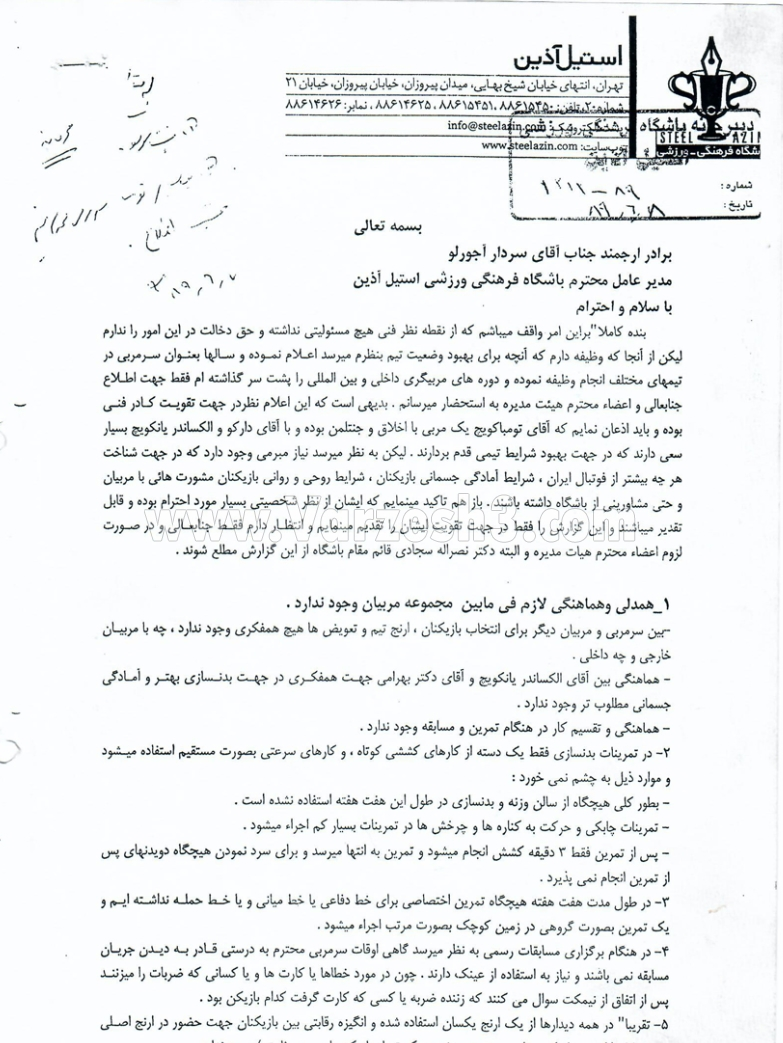 استیل آذین
تهران، انتهای خیابان شیخ بهایی، میدان پیروزان، خیابان پیروزان، خیابان ۲۱
شماره ۲، تلفن: ۸۸۶۱۵۴۵۰ ، ۸۸۶۱۵۴۵۱ ، ۸۸۶۱۴۶۲۵ ، نمابر: ۸۸۶۱۴۶۲۶
پست الکترونیک: info@steelazin.com
وب‌سایت: www.steelazin.com
STEEL AZIN
باشگاه فرهنگی - ورزشی
شماره: ۸۹ – ۱۳۱۲
تاریخ: ۸۹٫۶٫۸
بسمه تعالی
برادر ارجمند جناب آقای سردار آجورلو
مدیر عامل محترم باشگاه فرهنگی ورزشی استیل آذین
با سلام و احترام
بنده کاملا" براین امر واقف میباشم که از نقطه نظر فنی هیچ مسئولیتی نداشته و حق دخالت در این امور را ندارم
لیکن از آنجا که وظیفه دارم که آنچه برای بهبود وضعیت تیم بنظرم میرسد اعلام نموده و سالها بعنوان سرمربی در
تیمهای مختلف انجام وظیفه نموده و دوره های مربیگری داخلی و بین المللی را پشت سر گذاشته ام فقط جهت اطلاع
جنابعالی و اعضاء محترم هیئت مدیره به استحضار میرسانم . بدیهی است که این اعلام نظردر جهت تقویت کادر فنی
بوده و باید اذعان نمایم که آقای تومباکویچ یک مربی با اخلاق و جنتلمن بوده و با آقای دارکو و الکساندر یانکویچ بسیار
سعی دارند که در جهت بهبود شرایط تیمی قدم بردارند . لیکن به نظر میرسد نیاز مبرمی وجود دارد که در جهت شناخت
هر چه بیشتر از فوتبال ایران ، شرایط آمادگی جسمانی بازیکنان ، شرایط روحی و روانی بازیکنان مشورت هائی با مربیان
و حتی مشاورینی از باشگاه داشته باشند . باز هم تاکید مینمایم که ایشان از نظر شخصیتی بسیار مورد احترام بوده و قابل
تقدیر میباشند و این گزارش را فقط در جهت تقویت ایشان را تقدیم مینمایم و انتظار دارم فقط جنابعالی و در صورت
لزوم اعضاء محترم هیات مدیره و البته دکتر نصراله سجادی قائم مقام باشگاه از این گزارش مطلع شوند .
www.Varzesh3.com
۱_همدلی وهماهنگی لازم فی مابین مجموعه مربیان وجود ندارد .
-بین سرمربی و مربیان دیگر برای انتخاب بازیکنان ، ارنج تیم و تعویض ها هیچ همفکری وجود ندارد ، چه با مربیان
خارجی و چه داخلی .
- هماهنگی بین آقای الکساندر یانکویچ و آقای دکتر بهرامی جهت همفکری در جهت بدنسازی بهتر و آمادگی
جسمانی مطلوب تر وجود ندارد .
- هماهنگی و تقسیم کار در هنگام تمرین و مسابقه وجود ندارد .
۲- در تمرینات بدنسازی فقط یک دسته از کارهای کششی کوتاه ، و کارهای سرعتی بصورت مستقیم استفاده میشود
و موارد ذیل به چشم نمی خورد :
- بطور کلی هیچگاه از سالن وزنه و بدنسازی در طول این هفت هفته استفاده نشده است .
- تمرینات چابکی و حرکت به کناره ها و چرخش ها در تمرینات بسیار کم اجراء میشود .
- پس از تمرین فقط ۳ دقیقه کشش انجام میشود و تمرین به انتها میرسد و برای سرد نمودن هیچگاه دویدنهای پس
از تمرین انجام نمی پذیرد .
۳- در طول مدت هفت هفته هیچگاه تمرین اختصاصی برای خط دفاعی یا خط میانی و یا خط حمله نداشته ایم و
یک تمرین بصورت گروهی در زمین کوچک بصورت مرتب اجراء میشود .
۴- در هنگام برگزاری مسابقات رسمی به نظر میرسد گاهی اوقات سرمربی محترم به درستی قادر به دیدن جریان
مسابقه نمی باشند و نیاز به استفاده از عینک دارند . چون در مورد خطاها یا کارت ها و یا کسانی که ضربات را میزنند
پس از اتفاق از نیمکت سوال می کنند که زننده ضربه یا کسی که کارت گرفت کدام بازیکن بود .
۵- تقریبا" در همه دیدارها از یک ارنج یکسان استفاده شده و انگیزه رقابتی بین بازیکنان جهت حضور در ارنج اصلی